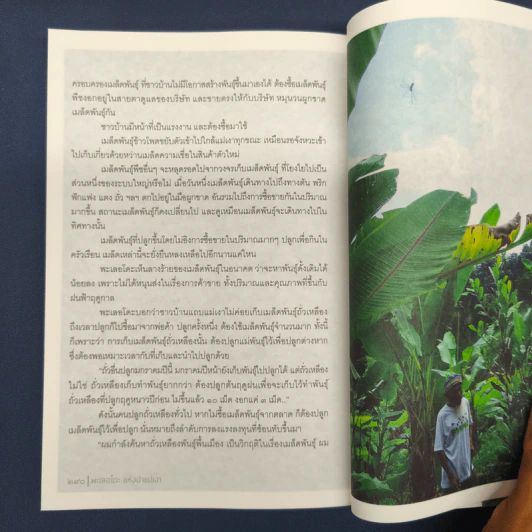 ครอบครองเมล็ดพันธุ์ ที่ชาวบ้านไม่มีโอกาสสร้างพันธุ์ขึ้นมาเองได้ ต้องซื้อเมล็ดพันธุ์
พืชงอกอยู่ในสายตาดูแลของบริษัท และขายตรงให้กับบริษัท หมุนวนผูกขาด
เมล็ดพันธุ์กัน
ชาวบ้านมีหน้าที่เป็นแรงงาน และต้องซื้อมาใช้
เมล็ดพันธุ์ข้าวโพดขยับตัวเข้าไปใกล้แม่เงาทุกขณะ เหมือนรอจังหวะเข้า
ไปเก็บเกี่ยวด้วยหว่านเมล็ดความเชื่อในสินค้าตัวใหม่
เมล็ดพันธุ์พืชอื่นๆ จะหลุดรอดไปจากวงจรเก็บเมล็ดพันธุ์ ที่โยงใยไปเป็น
ส่วนหนึ่งของระบบใหญ่หรือไม่ เมื่อวันหนึ่งเมล็ดพันธุ์เดินทางไปถึงทางตัน พริก
ฟักแฟง แตง ถั่ว ฯลฯ ตกไปอยู่ในมือผูกขาด อันรวมไปถึงการซื้อขายกันในปริมาณ
มากขึ้น สถานะเมล็ดพันธุ์ก็คงเปลี่ยนไป และดูเหมือนเมล็ดพันธุ์จะเดินทางไปใน
ทิศทางนั้น
เมล็ดพันธุ์ที่ปลูกขึ้นโดยไม่อิงการซื้อขายในปริมาณมากๆ ปลูกเพื่อกินใน
ครัวเรือน เมล็ดเหล่านี้จะยั่งยืนหลงเหลือไปอีกนานแค่ไหน
พะเลอโดะเห็นลางร้ายของเมล็ดพันธุ์ในอนาคต ว่าจะหาพันธุ์ดั้งเดิมได้
น้อยลง เพราะไม่ได้หนุนส่งในเรื่องการค้าขาย ทั้งปริมาณและคุณภาพที่ขึ้นกับ
ฝนฟ้าฤดูกาล
พะเลอโดะบอกว่าชาวบ้านแถบแม่เงาไม่ค่อยเก็บเมล็ดพันธุ์ถั่วเหลือง
ถึงเวลาปลูกก็ไปซื้อมาจากพ่อค้า ปลูกครั้งหนึ่ง ต้องใช้เมล็ดพันธุ์จำนวนมาก ทั้งนี้
ก็เพราะว่า การเก็บเมล็ดพันธุ์ถั่วเหลืองนั้น ต้องปลูกแม่พันธุ์ไว้เพื่อปลูกต่างหาก
ซึ่งต้องพอเหมาะเวลากับที่เก็บและนำไปปลูกด้วย
"ถั่วอื่นปลูกมกราคมปีนี้ มกราคมปีหน้ายังเก็บพันธุ์ไปปลูกได้ แต่ถั่วเหลือง
ไม่ใช่ ถั่วเหลืองเก็บทำพันธุ์ยากกว่า ต้องปลูกต้นฤดูฝนเพื่อจะเก็บไว้ทำพันธุ์
ถั่วเหลืองที่ปลูกฤดูหนาวปีก่อน ไม่ขึ้นแล้ว ๑๐ เม็ด งอกแค่ ๑ เม็ด.."
ดังนั้นคนปลูกถั่วเหลืองทั่วไป หากไม่ซื้อเมล็ดพันธุ์จากตลาด ก็ต้องปลูก
เมล็ดพันธุ์ไว้เพื่อปลูก นั่นหมายถึงลำดับการลงแรงลงทุนที่ซ้อนทับขึ้นมา
"ผมกำลังค้นหาถั่วเหลืองพันธุ์พื้นเมือง เป็นวิกฤติในเรื่องเมล็ดพันธุ์ ผม
๒๙๐ | พะเลอโดะ แห่งป่าแม่เงา